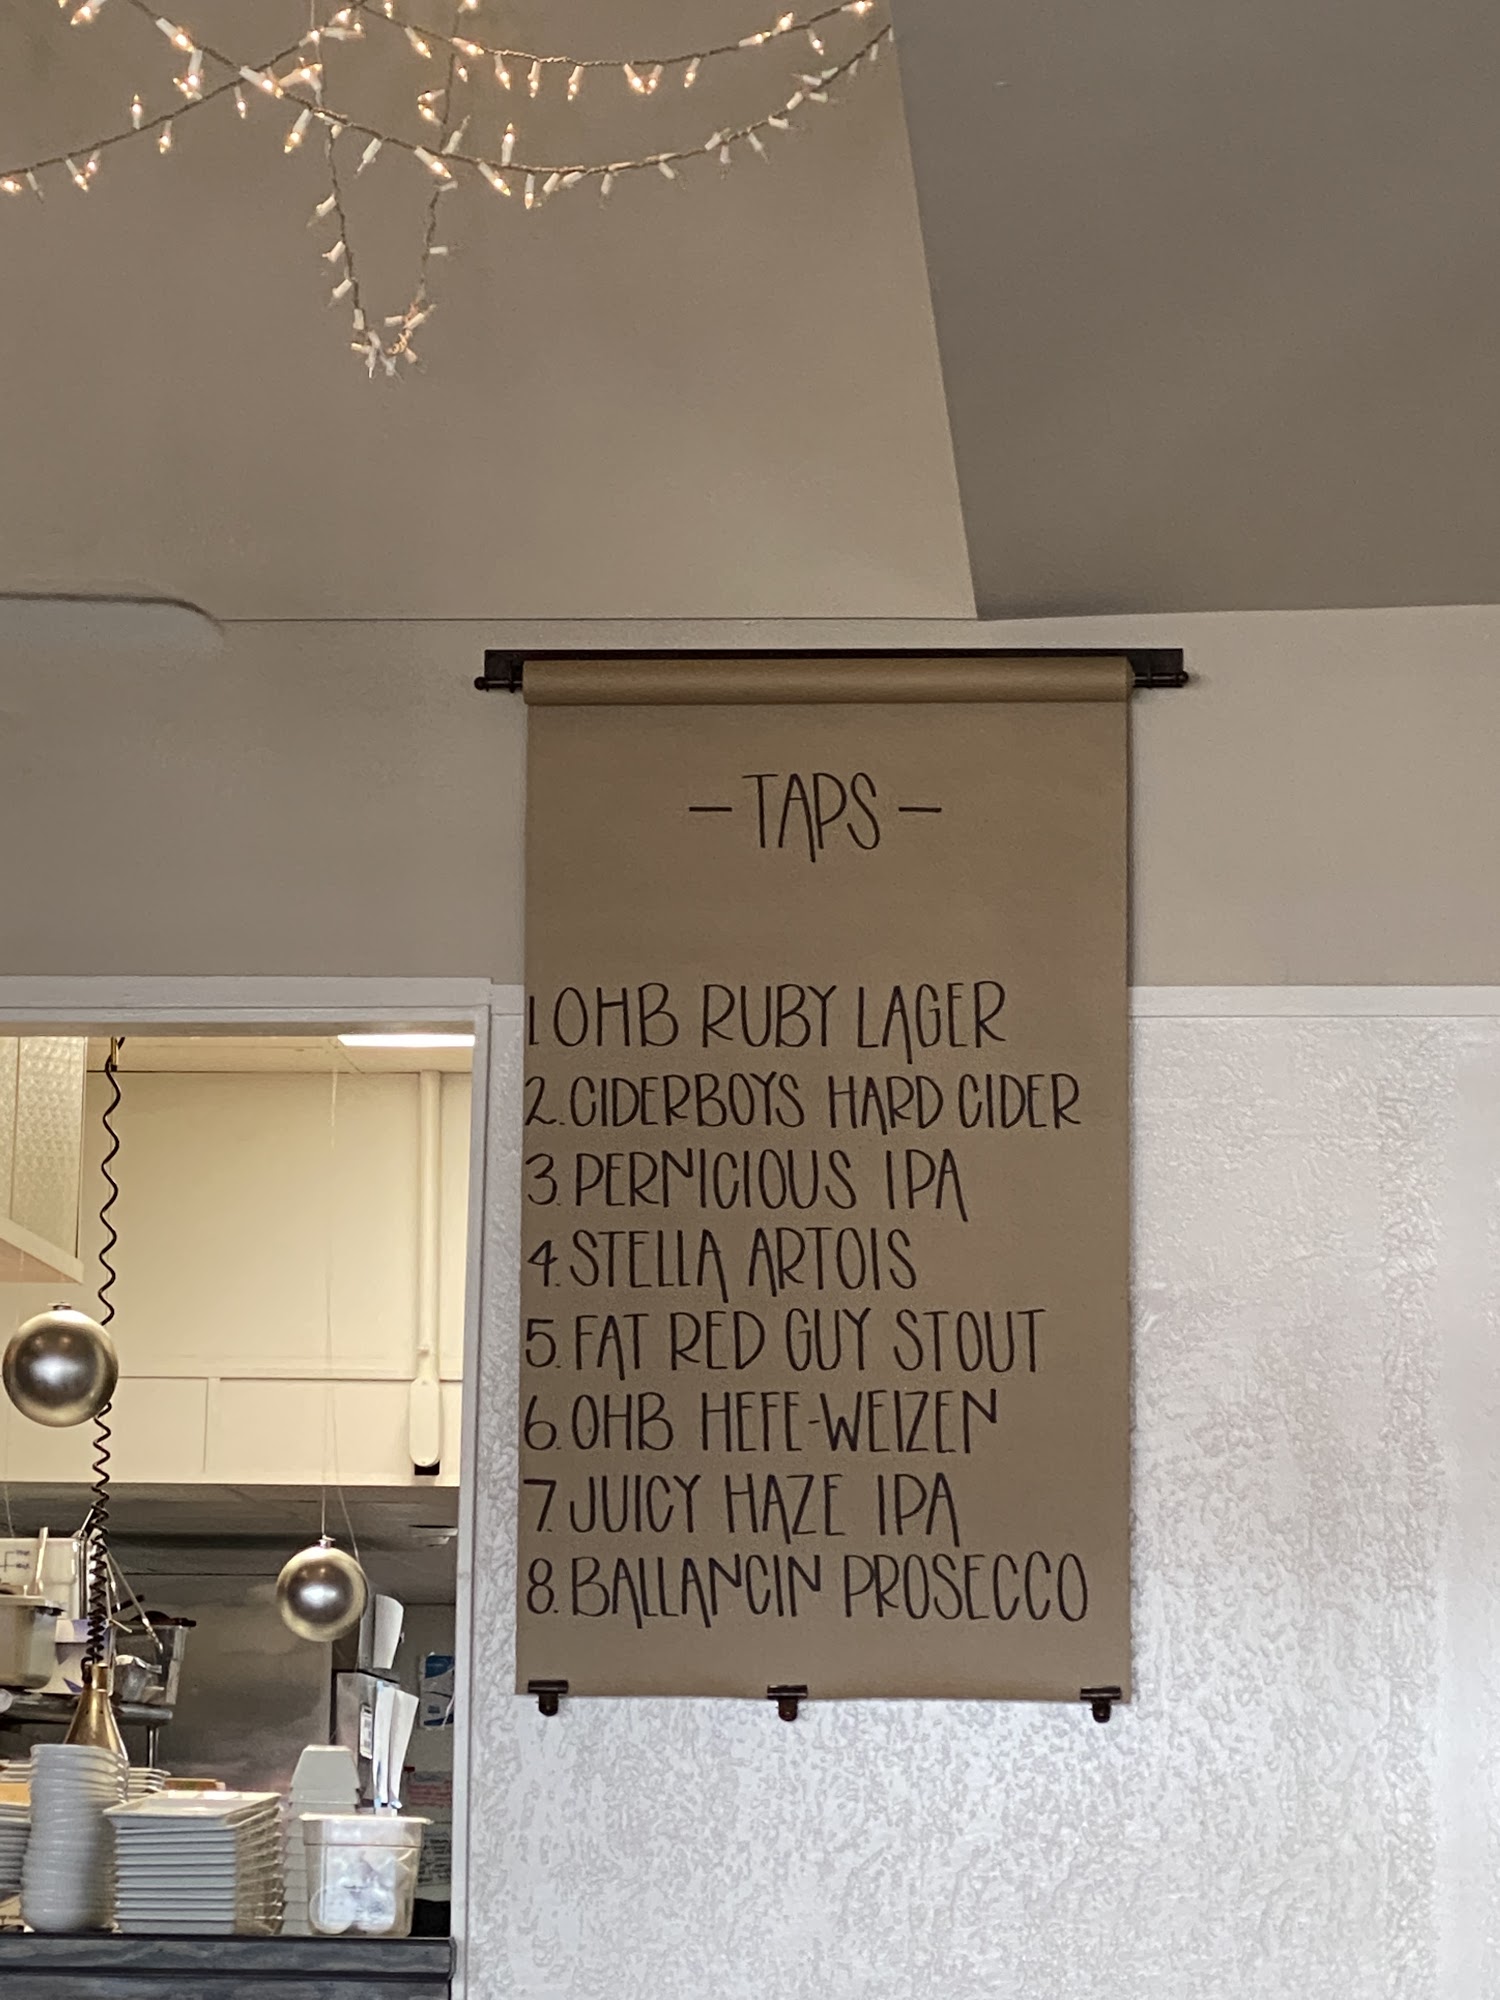 - TAPS -
1 OHB RUBY LAGER
2. CIDERBOYS HARD CIDER
3. PERNICIOUS IPA
4. STELLA ARTOIS
5. FAT RED GUY STOUT
6. OHB HEFE-WEIZEN
7. JUICY HAZE IPA
8. BALLANCIN PROSECCO